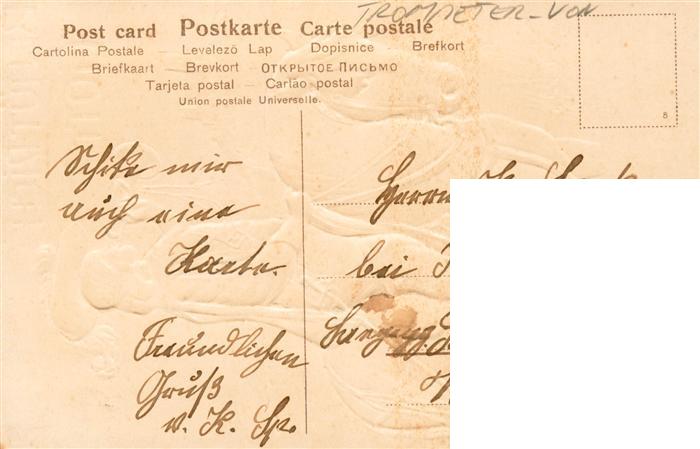 TROMPETER-VON
Post card Postkarte Carte postale
Cartolina Postale – Levelező Lap Dopisnice – Brefkort
Briefkaart – Brevkort – ОТКРЫТОЕ ПИСЬМО
Tarjeta postal – Cartão postal
Union postale Universelle.
8
Schike mir
auch eine
Karte.
Freundlichen
Gruß
v. K. Sp.
Herrn K.
bei